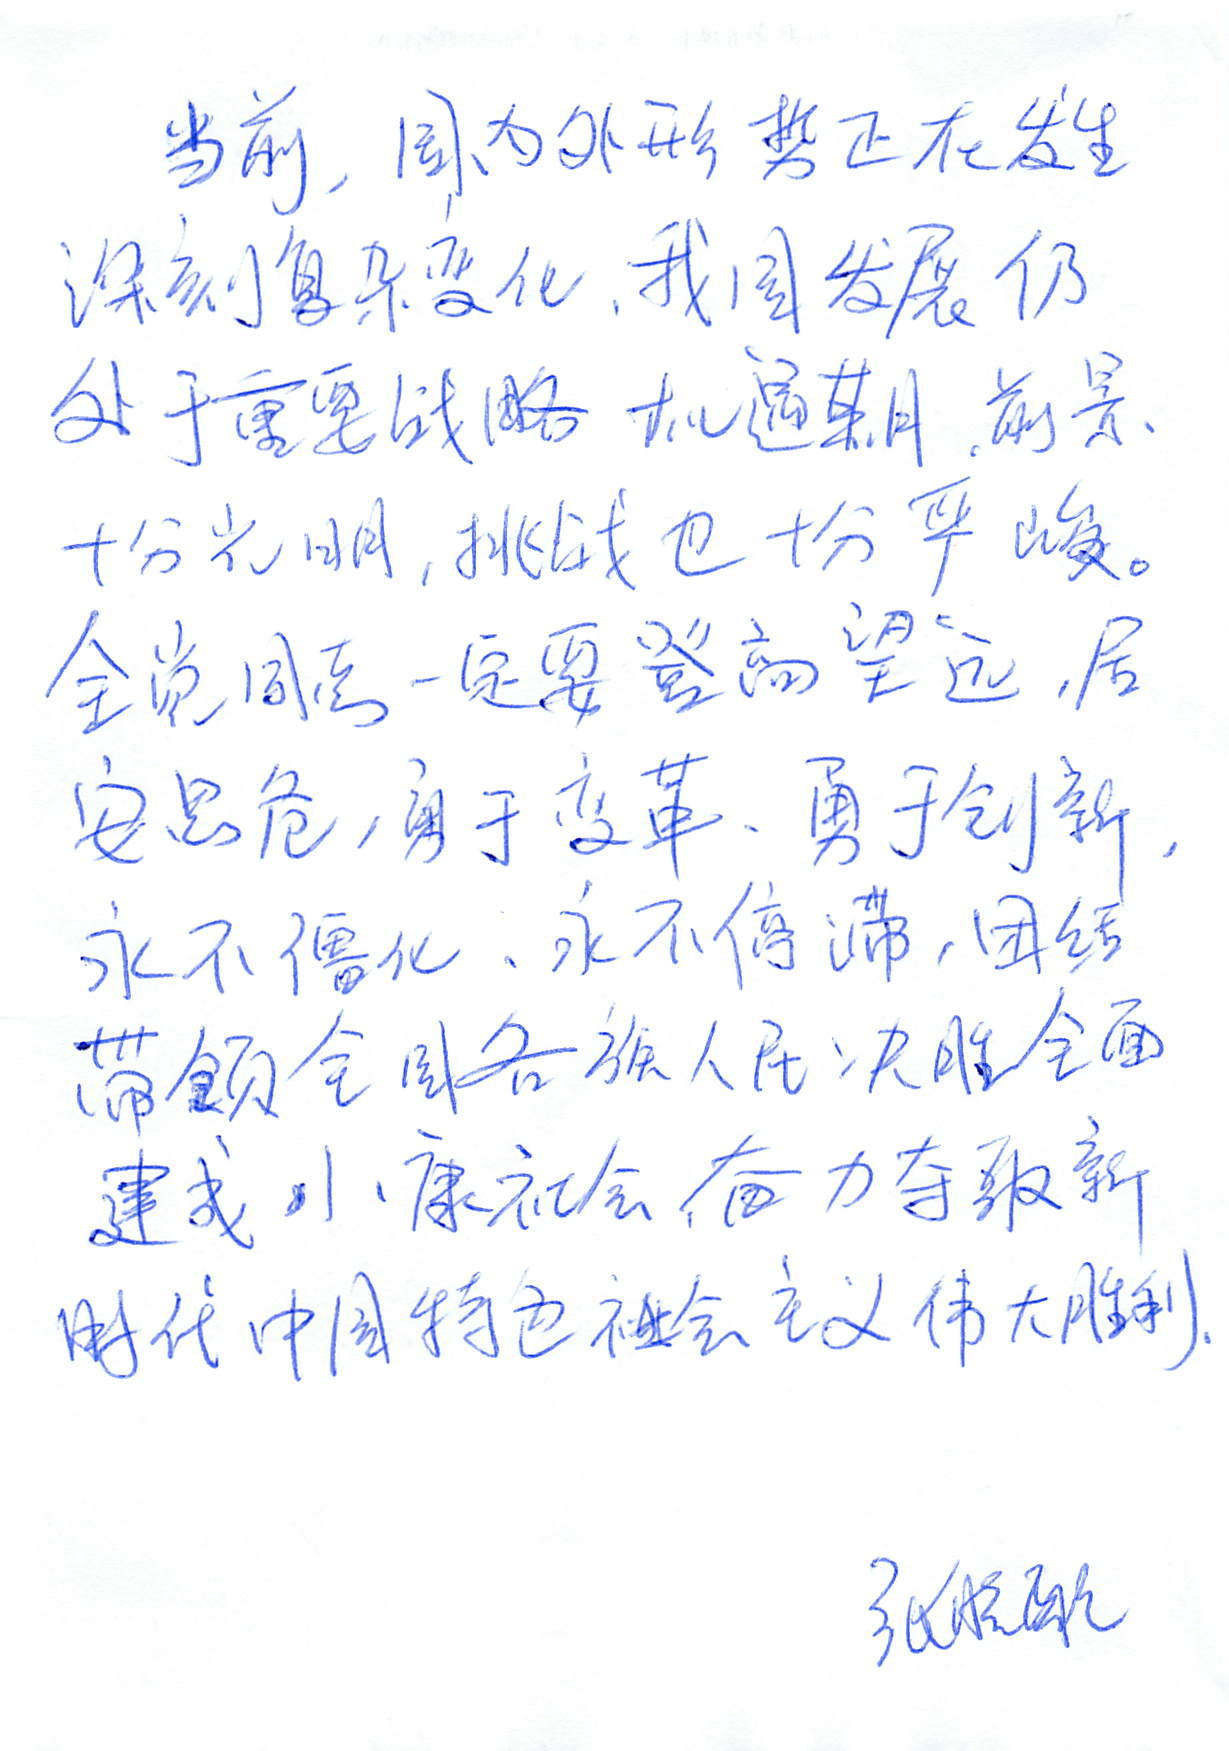 当前，国内外形势正在发生
深刻复杂变化，我国发展仍
处于重要战略机遇期，前景
十分光明，挑战也十分严峻。
全党同志一定要登高望远，居
安思危，勇于变革、勇于创新，
永不僵化、永不停滞，团结
带领全国各族人民决胜全面
建成小康社会，奋力夺取新
时代中国特色社会主义伟大胜利.